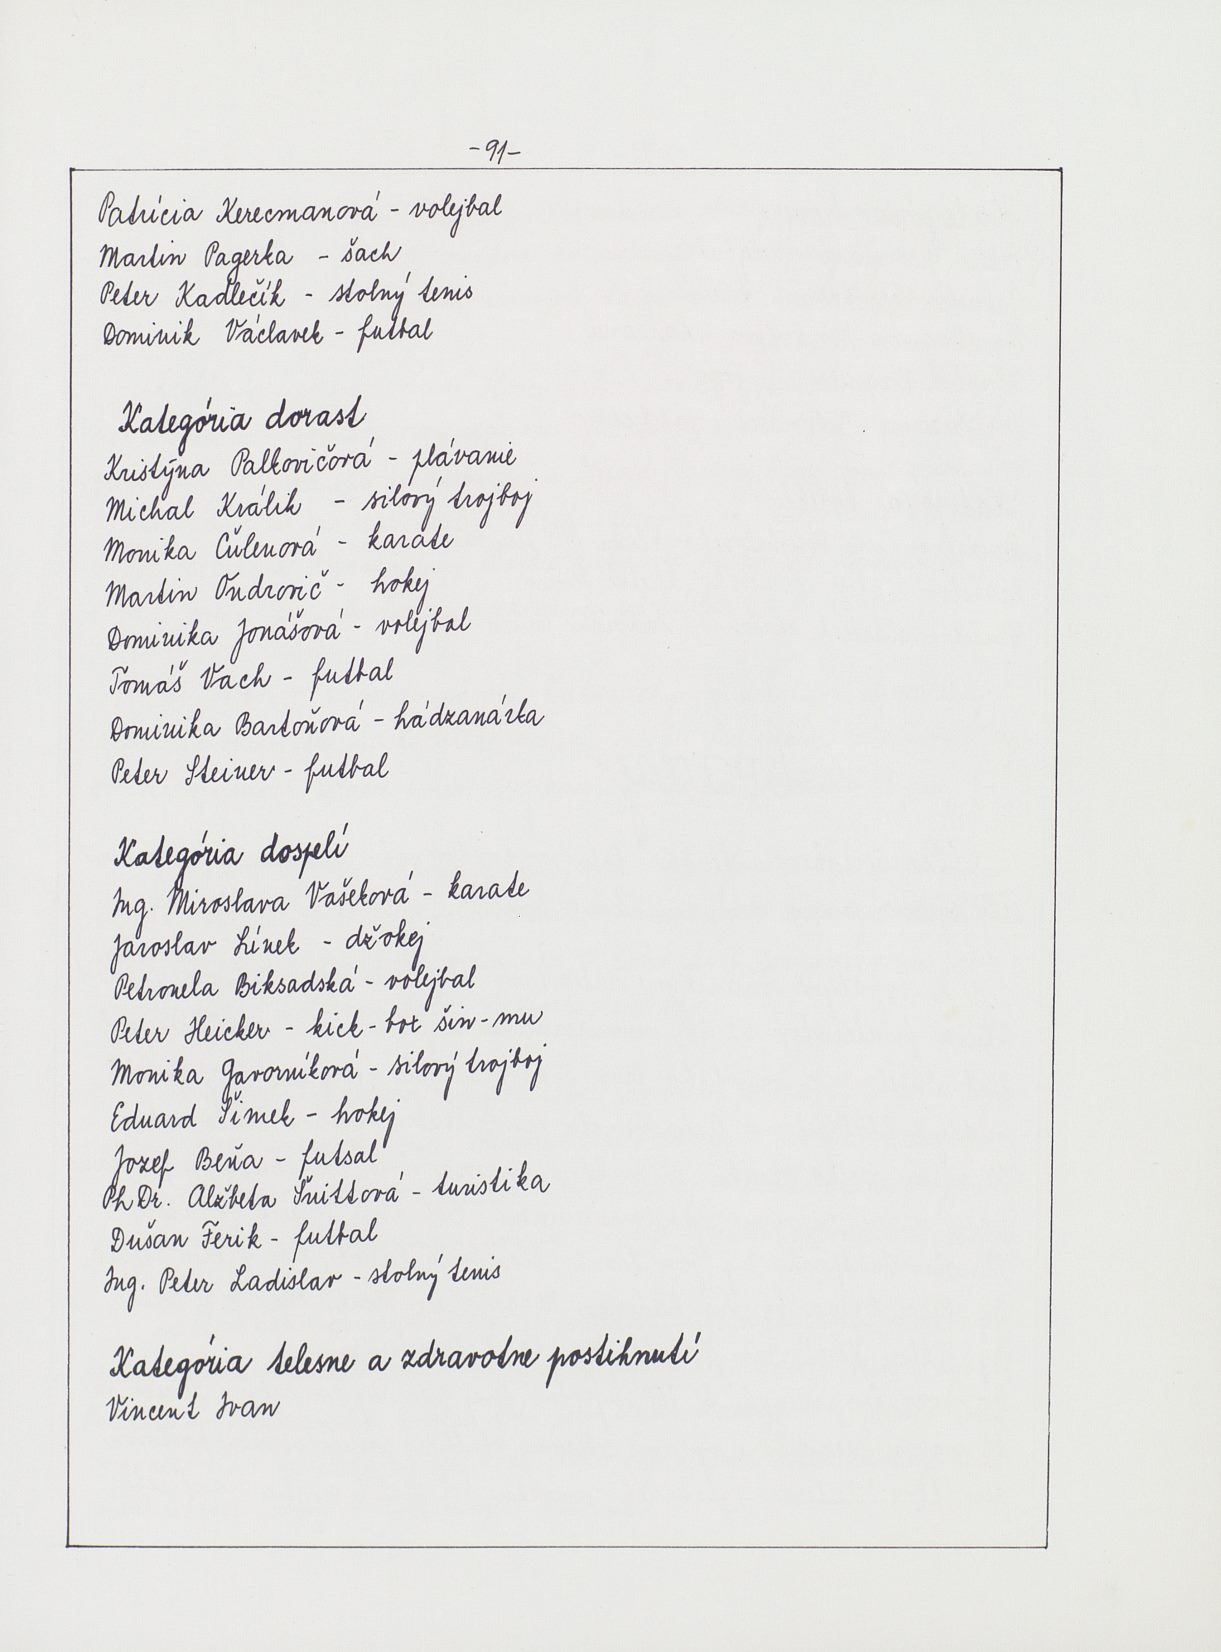 -91-
Patrícia Kerecmanová - volejbal
Martin Pagerka - šach
Peter Kadlečík - stolný tenis
Dominik Václavek - futbal
Kategória dorast
Kristýna Palkovičová - plávanie
Michal Králik - silový trojboj
Monika Čulenová - karate
Martin Ondrovič - hokej
Dominika Jonášová - volejbal
Tomáš Vach - futbal
Dominika Bartoňová - hádzanárka
Peter Steiner - futbal
Kategória dospelí
Ing. Miroslava Vašeková - karate
Jaroslav Línek - džokej
Petronela Biksadská - volejbal
Peter Heicker - kick-box šin-mu
Monika Javorníková - silový trojboj
Eduard Šimek - hokej
Jozef Beňa - futsal
PhDr. Alžbeta Šnittová - turistika
Dušan Ferik - futbal
Ing. Peter Ladislav - stolný tenis
Kategória telesne a zdravotne postihnutí
Vincent Ivan